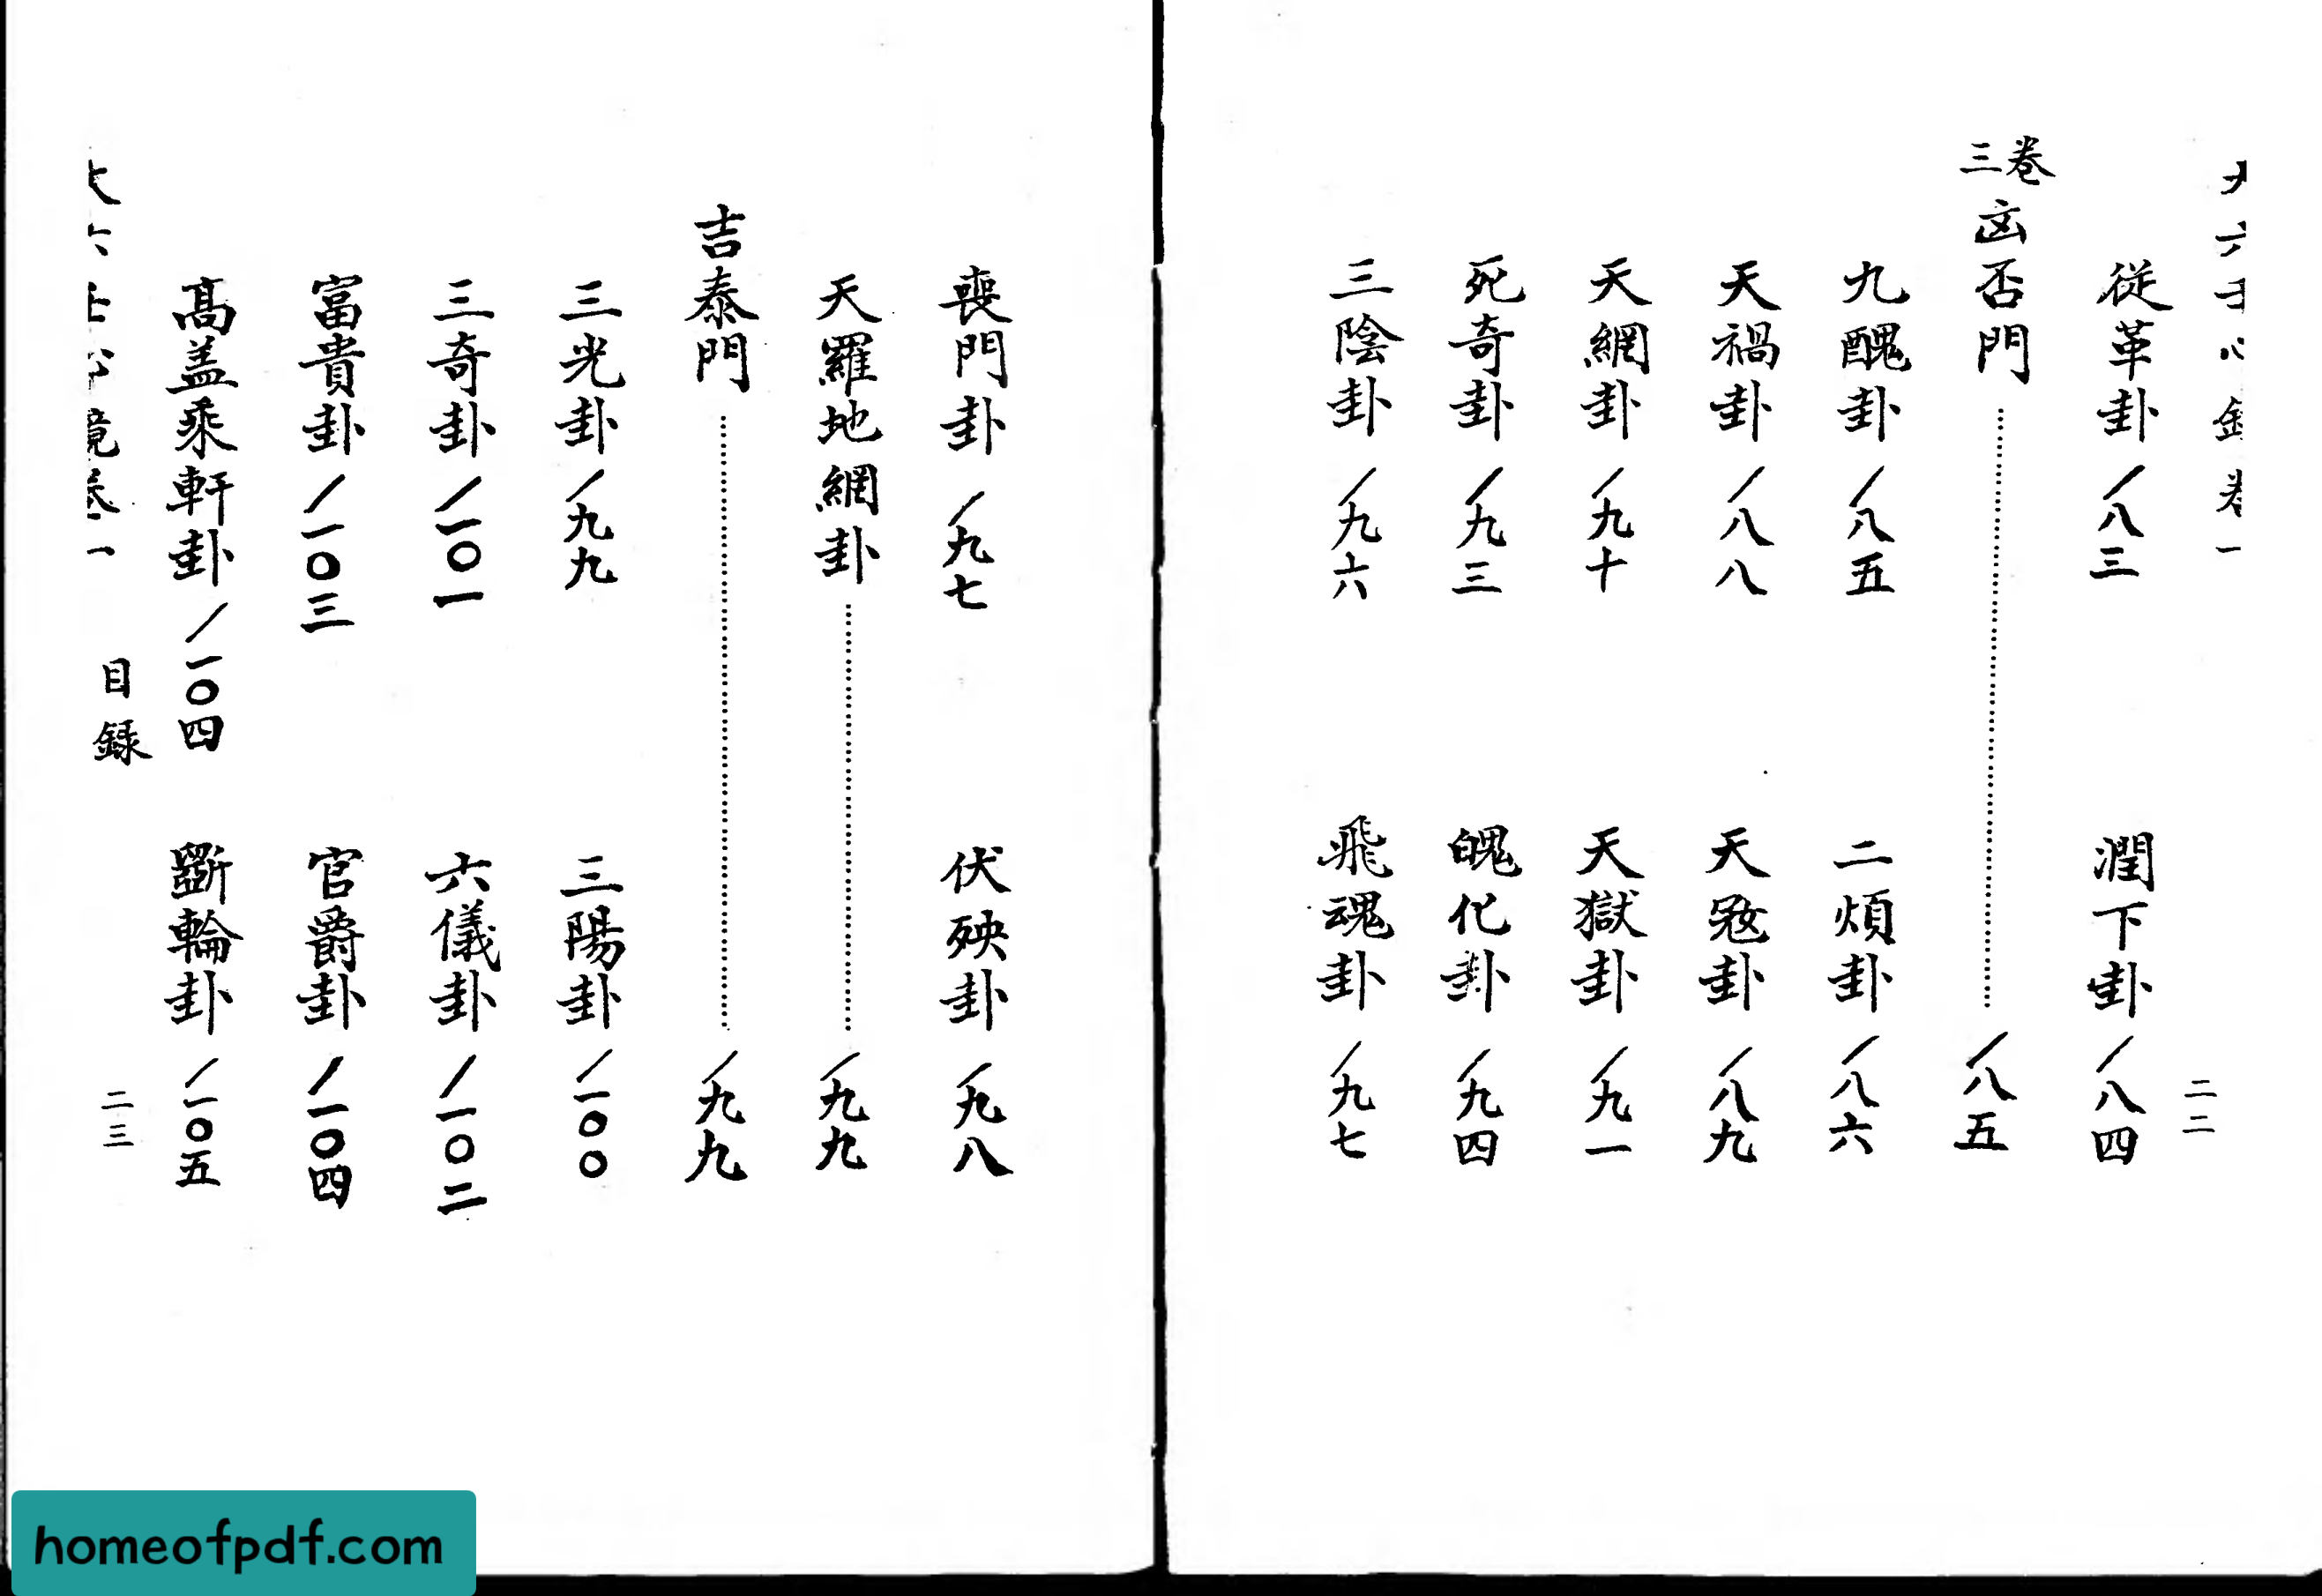 卷一
二二
從革卦／八三
潤下卦／八四
卷三
凶否門／八五
九醜卦／八五
二煩卦／八六
天禍卦／八八
天寇卦／八九
天網卦／九十
天獄卦／九一
死奇卦／九三
魄化卦／九四
三陰卦／九六
飛魂卦／九七
喪門卦／九七
伏殃卦／九八
天羅地網卦／九九
吉泰門／九九
三光卦／九九
三陽卦／一〇〇
三奇卦／一〇一
六儀卦／一〇二
富貴卦／一〇三
官爵卦／一〇四
高盖乘軒卦／一〇四
斷輪卦／一〇五
鏡卷一 目録 二三
homeofpdf.com